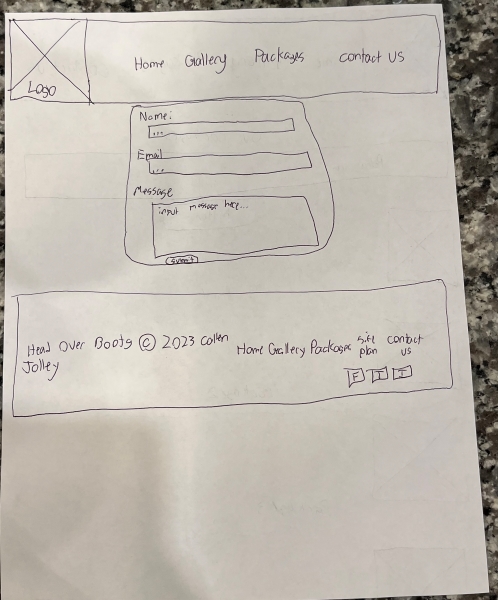 Logo
Home Gallery Packages contact US
Name:
...
Email
...
Message
input message here...
submit
Head Over Boots © 2023 Collen
Jolley
Home Gallery Packages site plan contact us
F I I